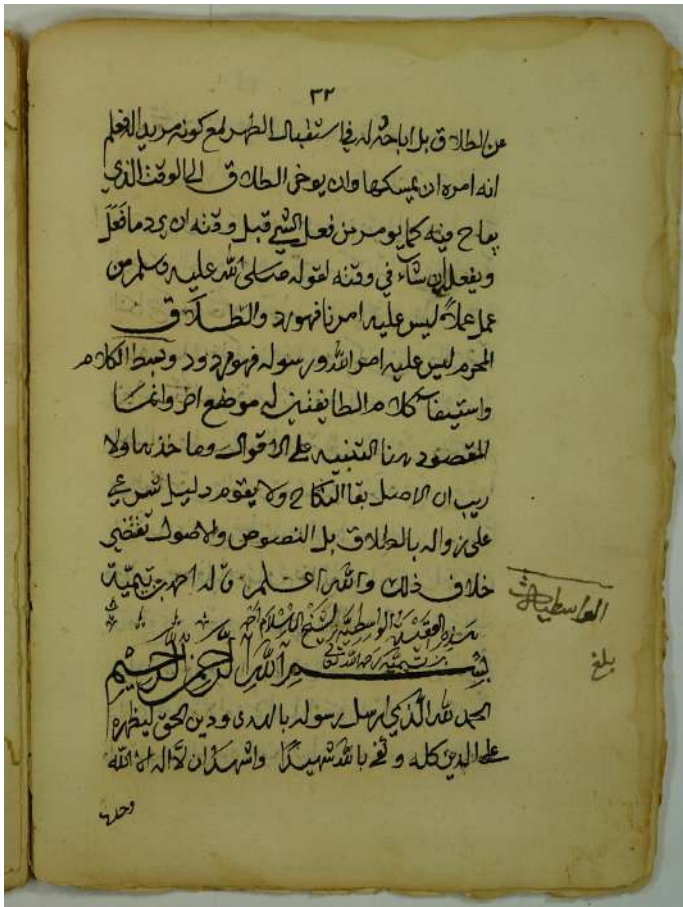 ٣٢
عن الطلاق بل اباحته له في استقبال الطهر مع كونه مريدا له فعلم
انه امره ان يمسكها وان يوخر الطلاق الى الوقت الذي
يباح فيه كما يومر من فعل الشي قبل وقته ان يرد ما فعل
ويفعله ان شاء في وقته لقوله صلى الله عليه وسلم من
عمل عملا ليس عليه امرنا فهو رد والطلاق
المحرم ليس عليه امر الله ورسوله فهو مردود وبسط الكلام
واستيفاء كلام الطايفتين له موضع اخر وانما
المقصود هنا التنبيه على الاقوال وماخذها ولا
ريب ان الاصل بقا النكاح ولا يقوم دليل شرعي
على زواله بالطلاق بل النصوص والاصول تقتضي
خلاف ذلك والله اعلم قاله احمد بن تيمية
هذه العقيدة الواسطية لشيخ الاسلام احمد
بن تيمية رحمه الله تعالى
بسم الله الرحمن الرحيم
الحمد لله الذي ارسل رسوله بالهدى ودين الحق ليظهره
على الدين كله وكفى بالله شهيدا واشهد ان لا اله الا الله
وحده
الواسطية
بلغ